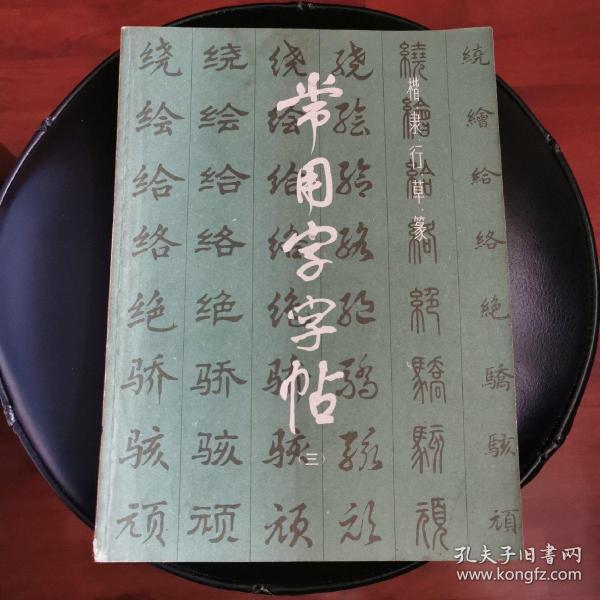 常用字字帖
(三)
楷隶行草篆
绕绘给络绝骄骇顽
绕绘给络绝骄骇顽
绕绘给络绝骄骇顽
繞繪給絡絶驕駭頑
繞繪給絡絶驕駭頑
繞繪給絡絶驕駭頑
孔夫子旧书网
www.kongfz.com